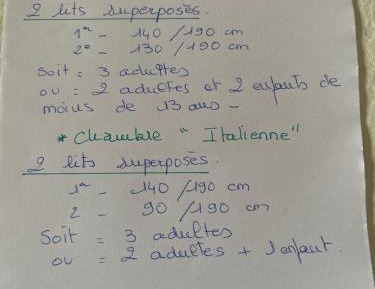 2 lits superposés.
1er - 140 / 190 cm
2e - 130 / 190 cm
Soit = 3 adultes
ou = 2 adultes et 2 enfants de
moins de 13 ans -
* Chambre " Italienne "
2 lits superposés.
1er - 140 / 190 cm
2 - 90 / 190 cm
Soit = 3 adultes
ou = 2 adultes + 1 enfant.